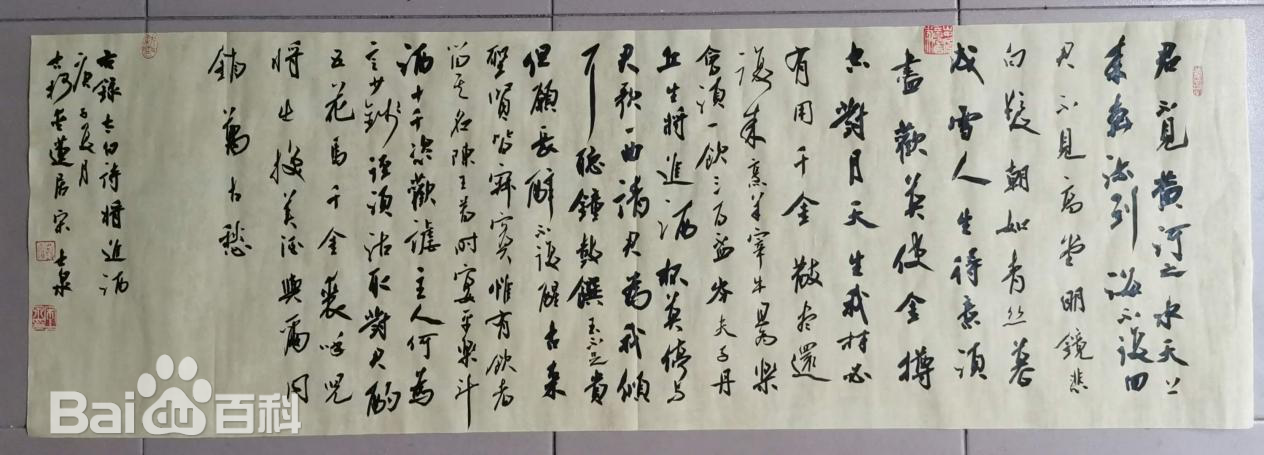 君不見黃河之水天上
來奔流到海不復回
君不見高堂明鏡悲
白髮朝如青丝暮
成雪人生得意須
盡歡莫使金樽
空對月天生我材必
有用千金散尽還
復来烹羊宰牛且為樂
會須一飲三百盃岑夫子丹
丘生將進酒杯莫停与
君歌一曲請君為我傾
耳聽鐘鼓饌玉不足貴
但願長醉不復醒古来
聖賢皆寂寞惟有飲者
留其名陳王昔时宴平樂斗
酒十千恣歡謔主人何為
言少錢逕須沽取對君酌
五花馬千金裘呼兒
將出換美酒與爾同
銷萬古愁
右録太白詩將進酒
庚子夏月
蓮居宋士泉
Bai du 百科